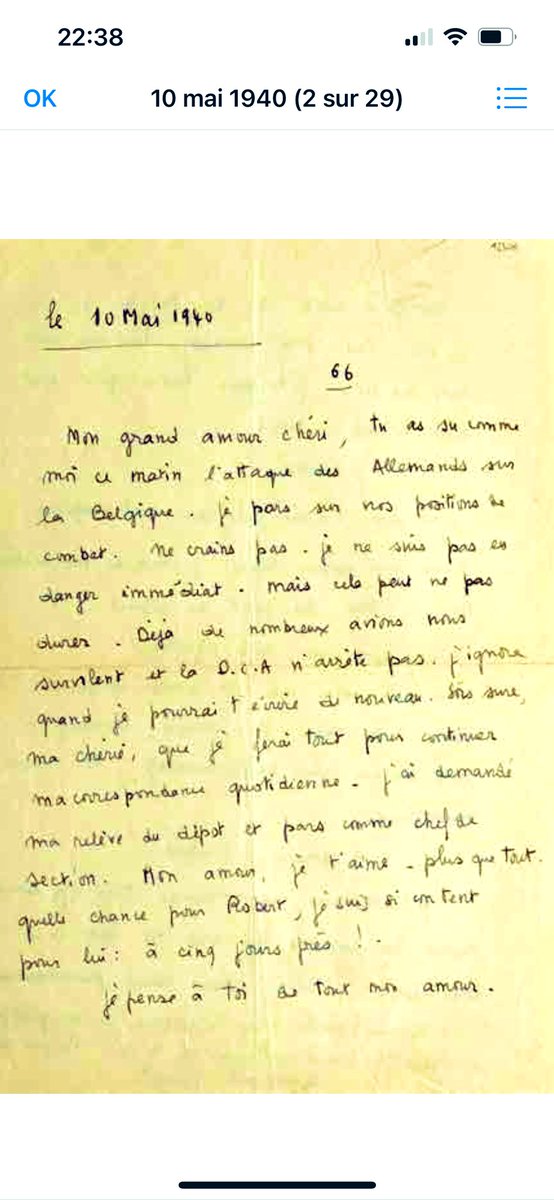 22:38
OK
10 mai 1940 (2 sur 29)
le 10 Mai 1940
66
Mon grand amour chéri, tu as su comme
moi ce matin l'attaque des Allemands sur
la Belgique. je pars sur nos positions de
combat. ne crains pas. je ne suis pas en
danger immédiat. mais cela peut ne pas
durer. Déjà de nombreux avions nous
survolent et la D.C.A n'arrête pas. j'ignore
quand je pourrai t'écrire de nouveau. Sois sure,
ma chérie, que je ferai tout pour continuer
ma correspondance quotidienne. j'ai demandé
ma relève du dépot et pars comme chef de
section. Mon amour, je t'aime. plus que tout.
quelle chance pour Robert, je suis si content
pour lui: à cinq jours près !.
je pense à toi de tout mon amour.